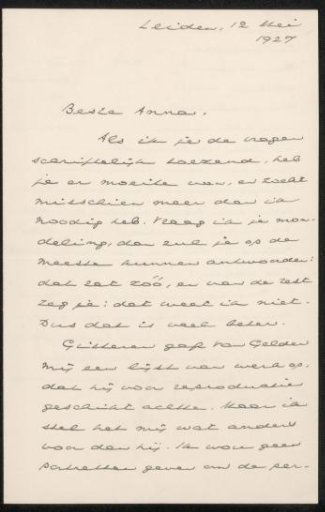 Leiden, 12 Mei
1927
Beste Anna,
Als ik je de vragen
schriftelijk toezend, heb
je er moeite van, er zoekt
misschien meer dan ik
noodig heb. Vraag ik je mon-
deling, dan zul je op de
meeste kunnen antwoorden:
dat zat zóó, en van de rest
zeg je: dat weet ik niet.
Dus dat is veel beter.
Gisteren gaf Van Gelder
mij een lijst van werk op,
dat hij voor reproductie
geschikt achtte. Maar ik
stel het mij wat anders
voor dan hij. Ik wou geen
portretten geven om de per-